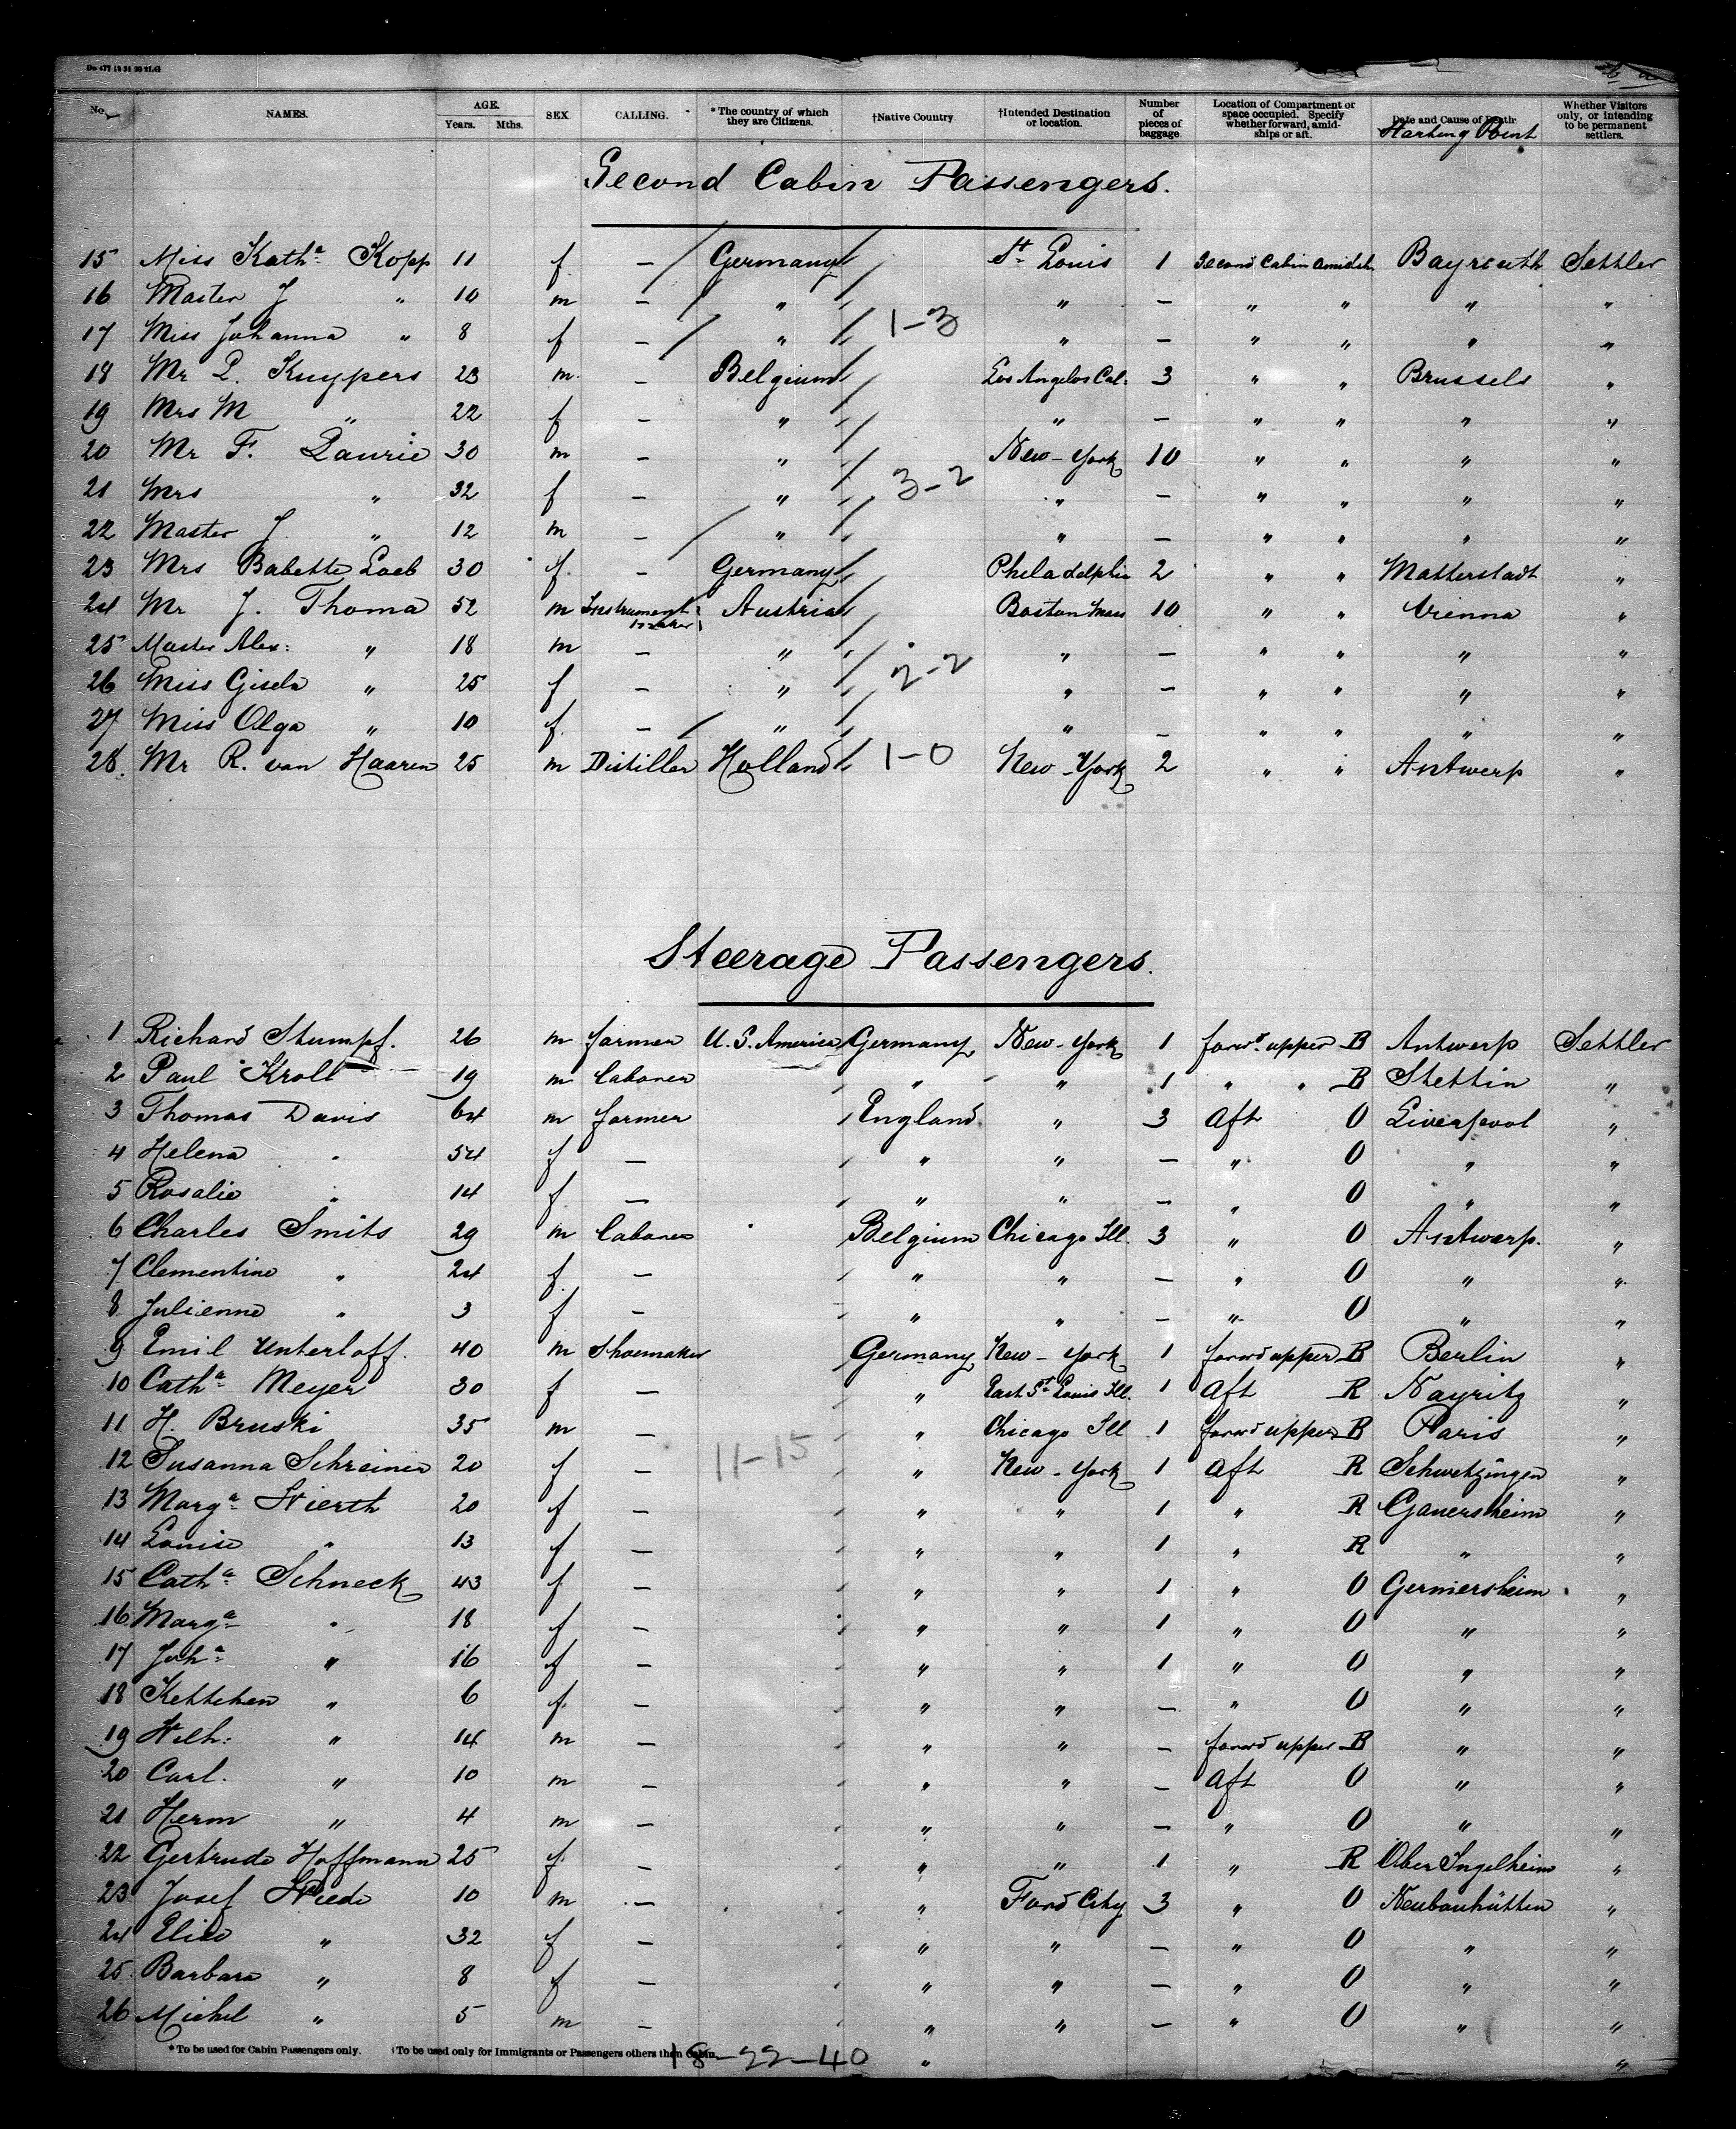 No. NAMES. AGE. Years. Mths. SEX. CALLING. * The country of which they are Citizens. †Native Country †Intended Destination or location. Number of pieces of baggage. Location of Compartment or space occupied. Specify whether forward, amidships or aft. Date and Cause of Death Starting Point Whether Visitors only, or intending to be permanent settlers.
Second Cabin Passengers.
15 Miss Katha Kopp 11 f — Germany St Louis 1 Second Cabin amidsh Bayreuth Settler
16 Master J " 10 m — " " — " " " "
17 Miss Johanna " 8 f — " 1-3 " — " " " "
18 Mr L. Kuypers 23 m. — Belgium Los Angelos Cal. 3 " " Brussels "
19 Mrs M " 22 f — " " — " " " "
20 Mr F. Laurie 30 m — " New-York 10 " " " "
21 Mrs " 32 f — " 3-2 " — " " " "
22 Master J " 12 m — " " — " " " "
23 Mrs Babette Loeb 30 f. — Germany Philadelphia 2 " " Matterstadt "
24 Mr J. Thoma 52 m Instrument maker Austria Boston Mass 10 " " Vienna "
25 Master Alex: " 18 m — " " — " " " "
26 Miss Gisela " 25 f — " 2-2 " — " " " "
27 Miss Olga " 10 f. — " " — " " " "
28. Mr R. van Haaren 25 m Distiller Holland 1-0 New-York 2 " " Antwerp "
Steerage Passengers.
1 Richard Stumpf. 26 m farmer U.S. America Germany New-York 1 forwd upper B Antwerp Settler
2 Paul Kroll 19 m labourer " " 1 " " B Stettin "
3 Thomas Davis 64 m farmer England " 3 Aft O Liverpool "
4 Helena " 54 f — " " — " O " "
5 Rosalie " 14 f — " " — " O " "
6 Charles Smits 29 m labourer Belgium Chicago Ill. 3 " O Antwerp. "
7 Clementine " 24 f. — " " — " O " "
8 Julienne " 3 f — " " — " O " "
9 Emil Unterloff. 40 m Shoemaker Germany New-York 1 forwd upper B Berlin "
10 Catha Meyer 30 f — " East St Louis Ill. 1 Aft R Nayritz "
11 H. Bruski 35 m — " Chicago Ill 1 forwd upper B Paris "
12 Susanna Schreiner 20 f — 11-15 " New-York 1 Aft R Schwetzingen "
13 Marga Wierth 20 f — " " 1 " R Gauersheim "
14 Louise " 13 f — " " 1 " R " "
15 Catha Schneck 43 f — " " 1 " O Germersheim "
16 Marga " 18 f — " " 1 " O " "
17 Joha " 16 f — " " 1 " O " "
18 Kettchen " 6 f. — " " — " O " "
19 Wilh: " 14 m — " " — forwd upper B " "
20 Carl. " 10 m — " " — Aft O " "
21 Herm " 4 m — " " — " O " "
22 Gertrude Hoffmann 25 f — " " 1 " R Ober Ingelheim "
23 Josef Wiede 10 m — " Ford City 3 " O Neubauhütten "
24 Elise " 32 f — " " — " O " "
25. Barbara " 8 f — " " — " O " "
26 Michel " 5 m — " " — " O " "
* To be used for Cabin Passengers only. †To be used only for Immigrants or Passengers others than Cabin. 18-22-40 " "